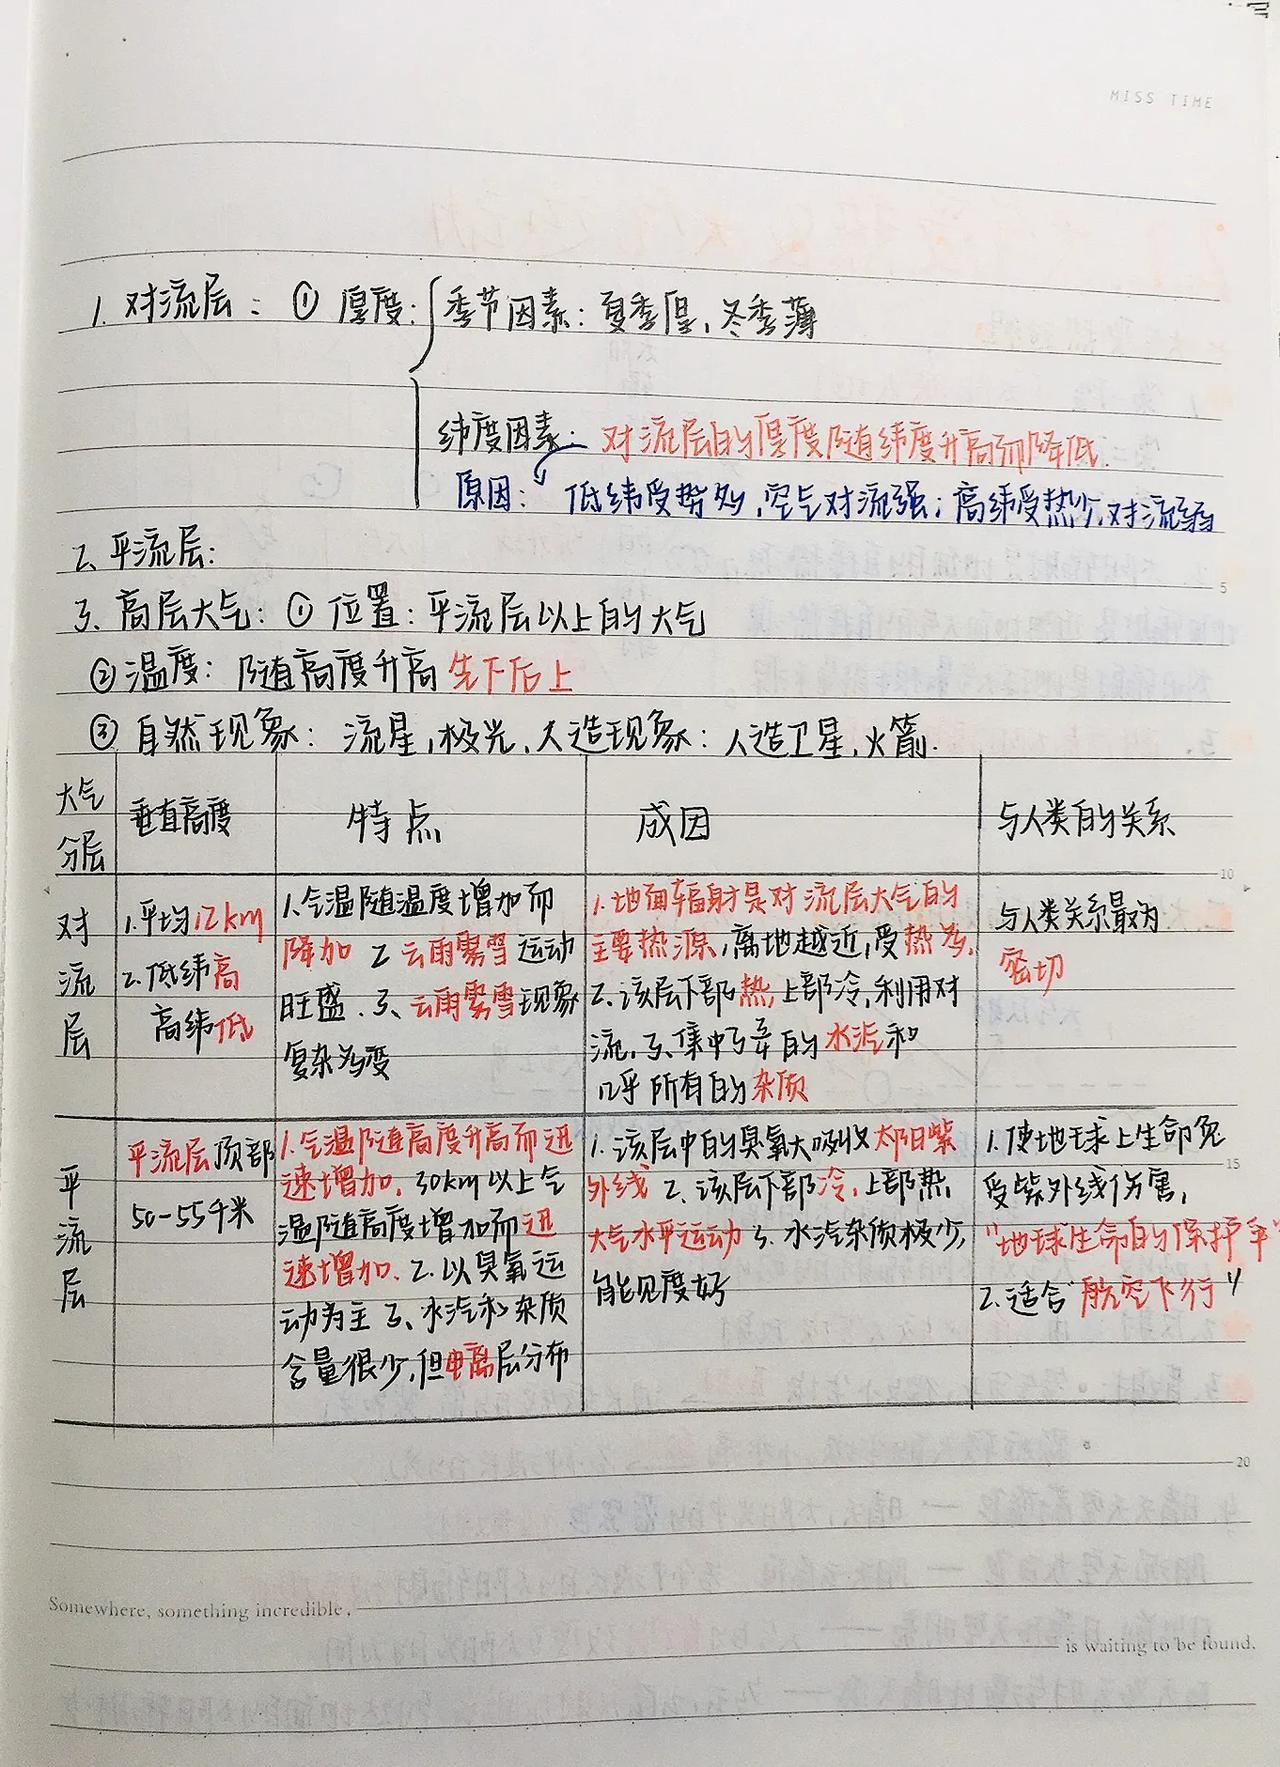 MISS TIME
1. 对流层：① 厚度：季节因素：夏季厚，冬季薄
纬度因素：对流层的厚度随纬度升高而降低.
原因：低纬受势多，空气对流强；高纬受热少，对流弱
2、平流层：
3、高层大气：① 位置：平流层以上的大气
② 温度：随高度升高先下后上
③ 自然现象：流星，极光，人造现象：人造卫星，火箭.
大气
分层
垂直高度
特点
成因
与人类的关系
对
流
层
1.平均12km
2.低纬高
高纬低
1.气温随温度增加而
降加 2 云雨雾雪运动
旺盛. 3、云雨雾雪现象
复杂多变
1.地面辐射是对流层大气的
主要热源，离地越近，受热多.
2、该层下部热，上部冷，利用对
流. 3、集中的水汽和
几乎所有的杂质
与人类关系最为
密切
平
流
层
平流层顶部
50-55千米
1.气温随高度升高而迅
速增加. 30km以上气
温随高度增加而迅
速增加. 2.以臭氧运
动为主 3、水汽和杂质
含量很少，但电离层分布
1.该层中的臭氧大吸收太阳紫
外线 2、该层下部冷，上部热，
大气水平运动 3、水汽杂质极少，
能见度好
1.使地球上生命免
受紫外线伤害，
"地球生命的保护伞"
2.适合"航空飞行"
5
10
15
20
Somewhere, something incredible,
is waiting to be found.